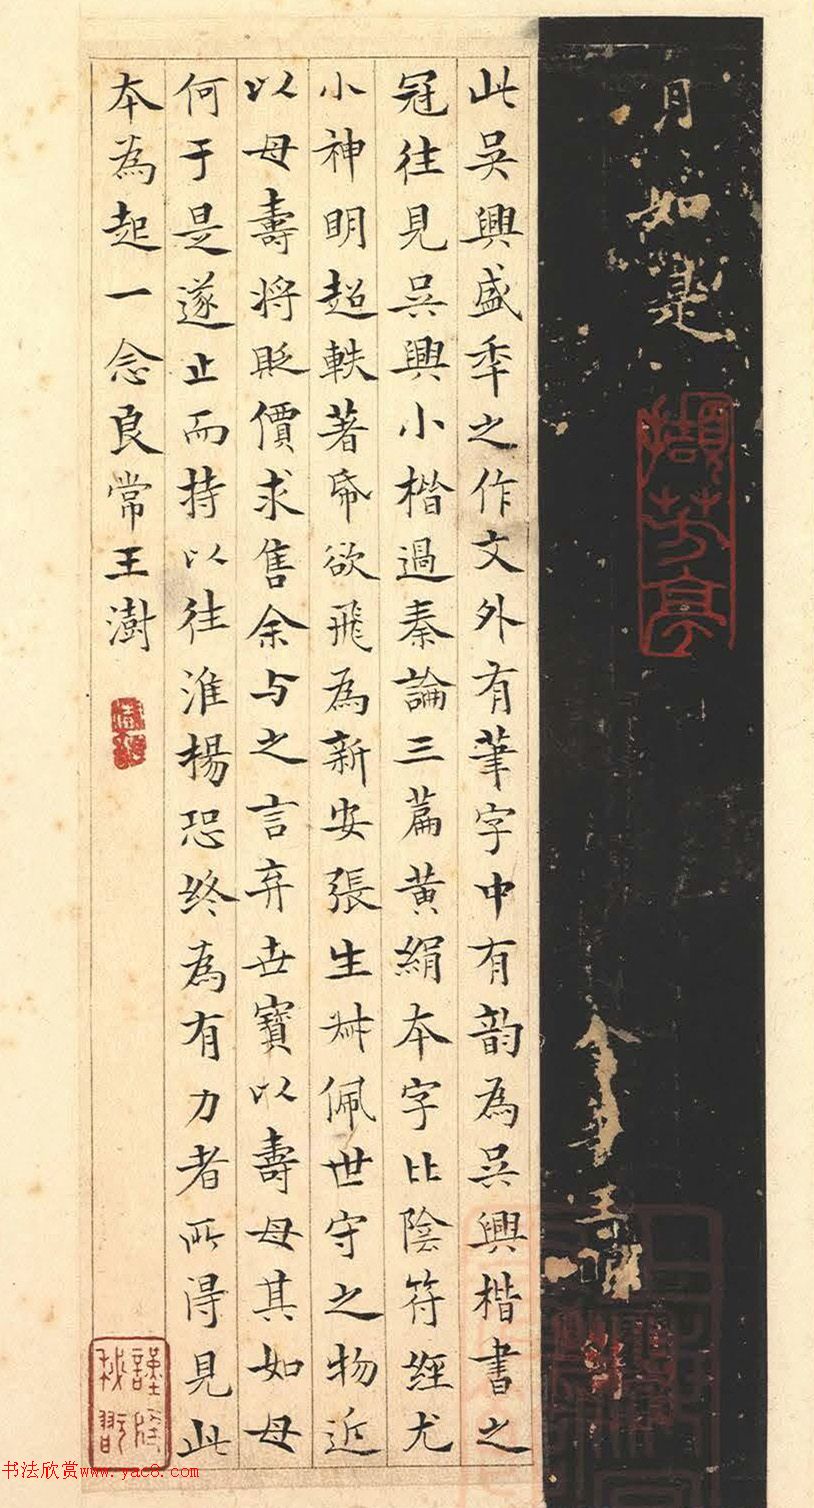 月
如邌
擷芳亭
王
此吳興盛季之作文外有筆字中有韵為吳興楷書之
冠往見吳興小楷過秦論三篇黃絹本字比陰符經尤
小神明超軼著帋欲飛為新安張生卌佩世守之物近
以母壽將貶價求售余与之言弃世寶以壽母其如母
何于是遂止而持以往淮楊恐終為有力者所得見此
本為起一念良常王澍
書法欣赏www.yac8.com